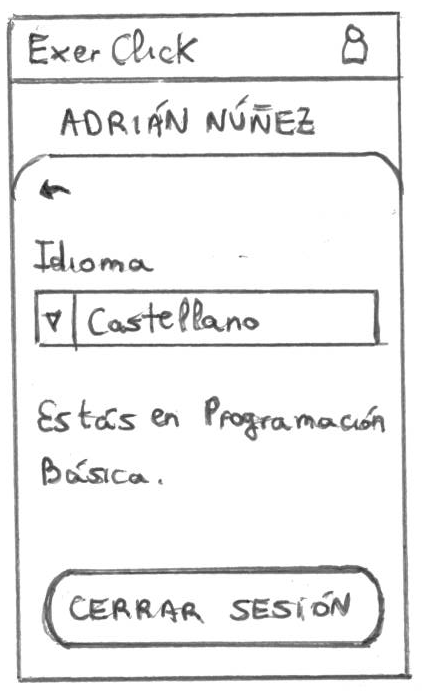 ExerClick
ADRIÁN NÚÑEZ
Idioma
Castellano
Estás en Programación
Básica.
CERRAR SESIÓN